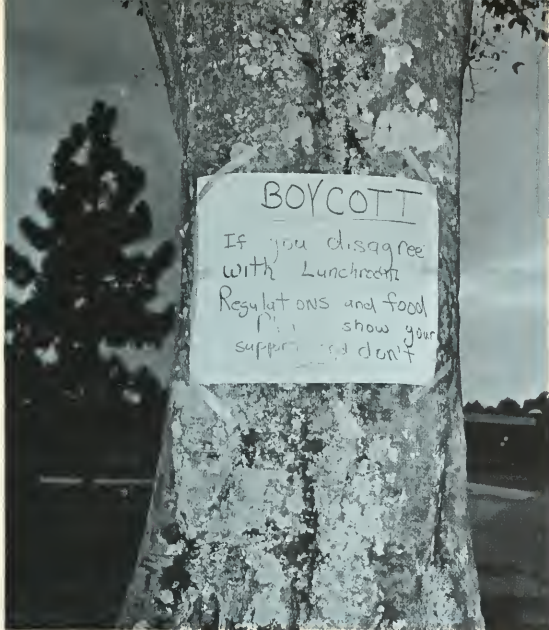 BOYCOTT
If you disagree
with Lunchroom
Regulations and food
show your
support and don't